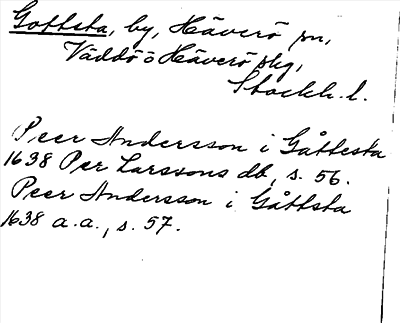 Gottsta, by, Häverö sn,
Väddö o Häverö skg,
Stockh. l.
Peer Andersson i Gåttesta
1638 Per Larssons db, s. 56.
Peer Andersson i Gåttsta
1638 a.a., s. 57.